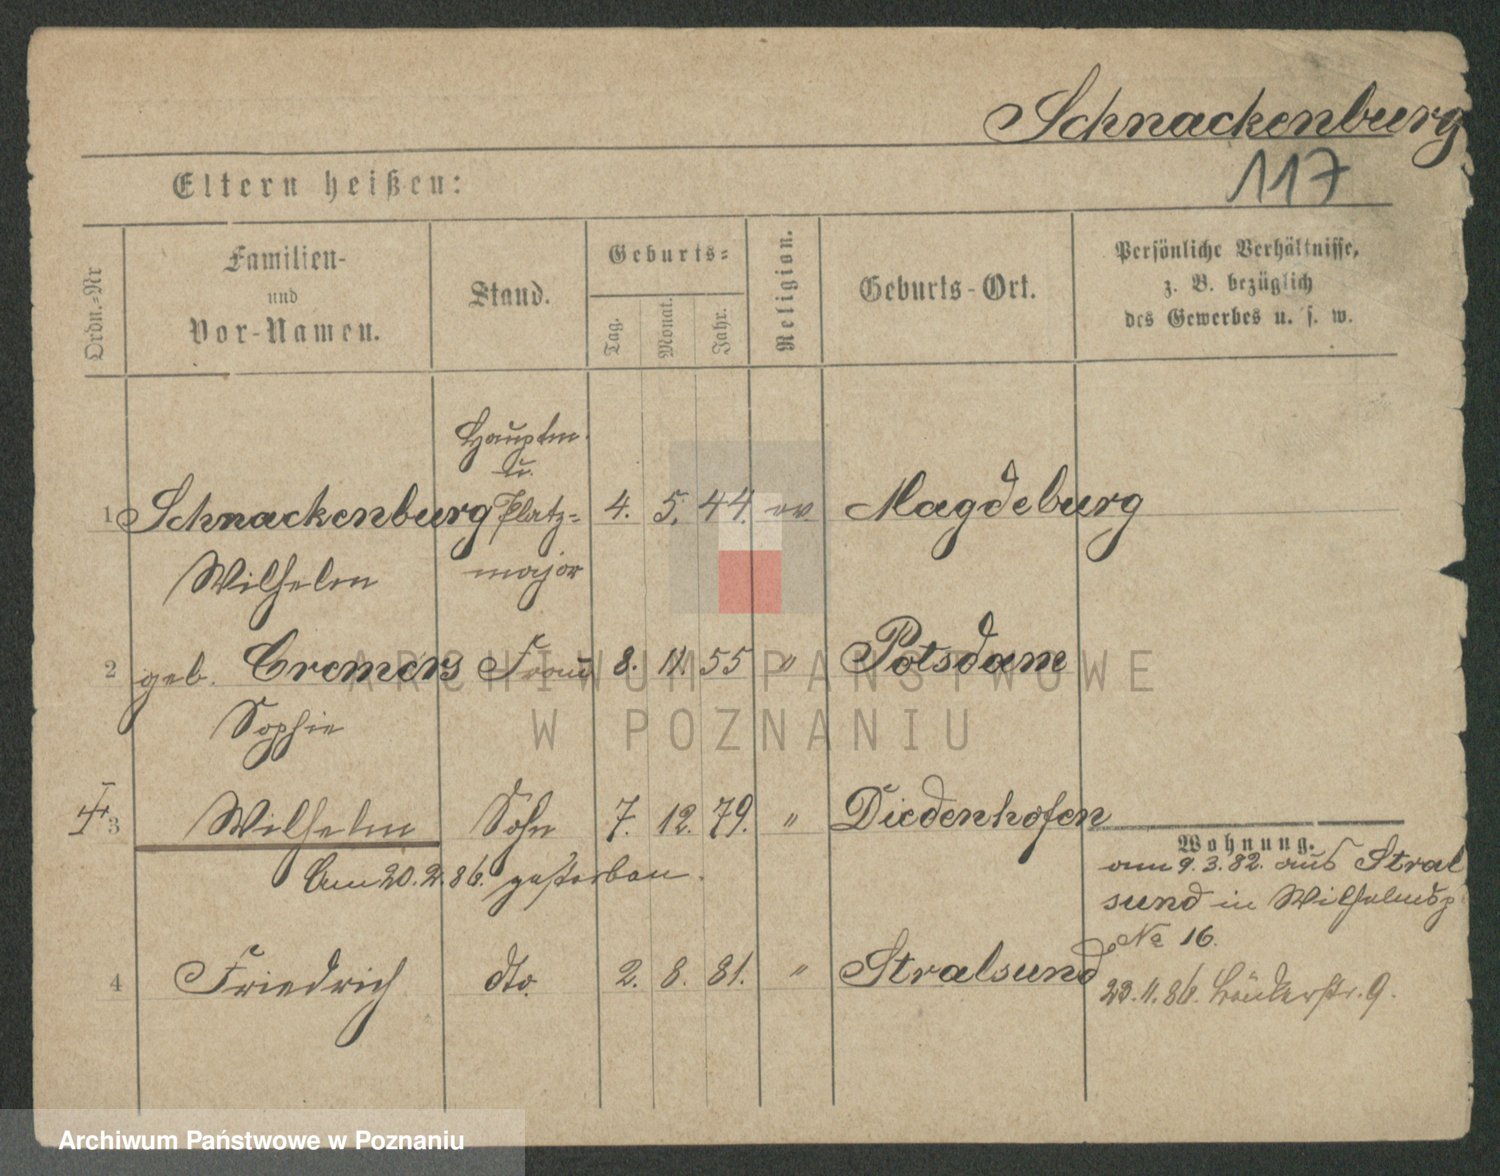 Schnackenburg
117
Eltern heißen:
Ordn.=Nr
Familien-
und
Vor-Namen.
Stand.
Geburts=
Tag.
Monat.
Jahr.
Religion.
Geburts-Ort.
Persönliche Verhältnisse,
z. B. bezüglich
des Gewerbes u. s. w.
Hauptm.
u.
1 Schnackenburg Platz= 4. 5. 44. ev. Magdeburg
Wilhelm major
2 geb. Cremers Frau 8. 11. 55 " Potsdam
Sophie
3 Wilhelm Sohn 7. 12. 79. " Diedenhofen
Am 20.2.86. gestorben.
Wohnung.
am 9.3.82. aus Stral
sund in Wilhelmsp
No 16.
4 Friedrich dto. 2. 8. 81. " Stralsund
23.11.86. 9.
ARCHIWUM PAŃSTWOWE
W POZNANIU
Archiwum Państwowe w Poznaniu